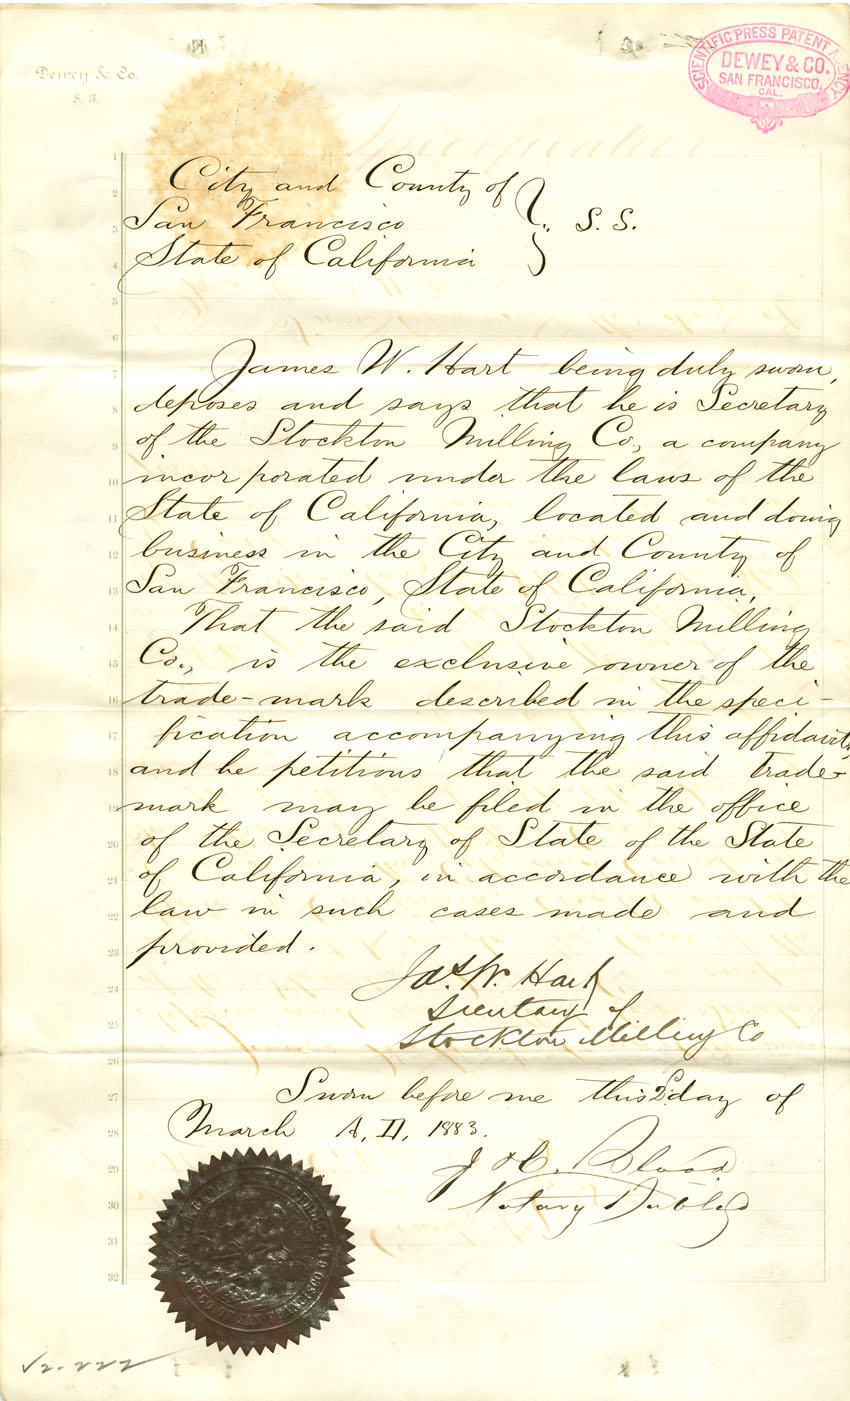 Dewey & Co.
S. F.
SCIENTIFIC PRESS PATENT AGENCY
DEWEY & CO.
SAN FRANCISCO,
CAL.
City and County of
San Francisco
State of California
} S. S.
James W. Hart being duly sworn,
deposes and says that he is Secretary
of the Stockton Milling Co., a company
incorporated under the laws of the
State of California, located and doing
business in the City and County of
San Francisco, State of California,
That the said Stockton Milling
Co., is the exclusive owner of the
trade-mark described in the speci-
fication accompanying this affidavit,
and he petitions that the said trade-
mark may be filed in the office
of the Secretary of State of the State
of California, in accordance with the
law in such cases made and
provided.
Jas. W. Hart
Secretary of
Stockton Milling Co
Sworn before me this 2d day of
March A, D, 1883.
Blood
Notary Public
SAN FRANCISCO